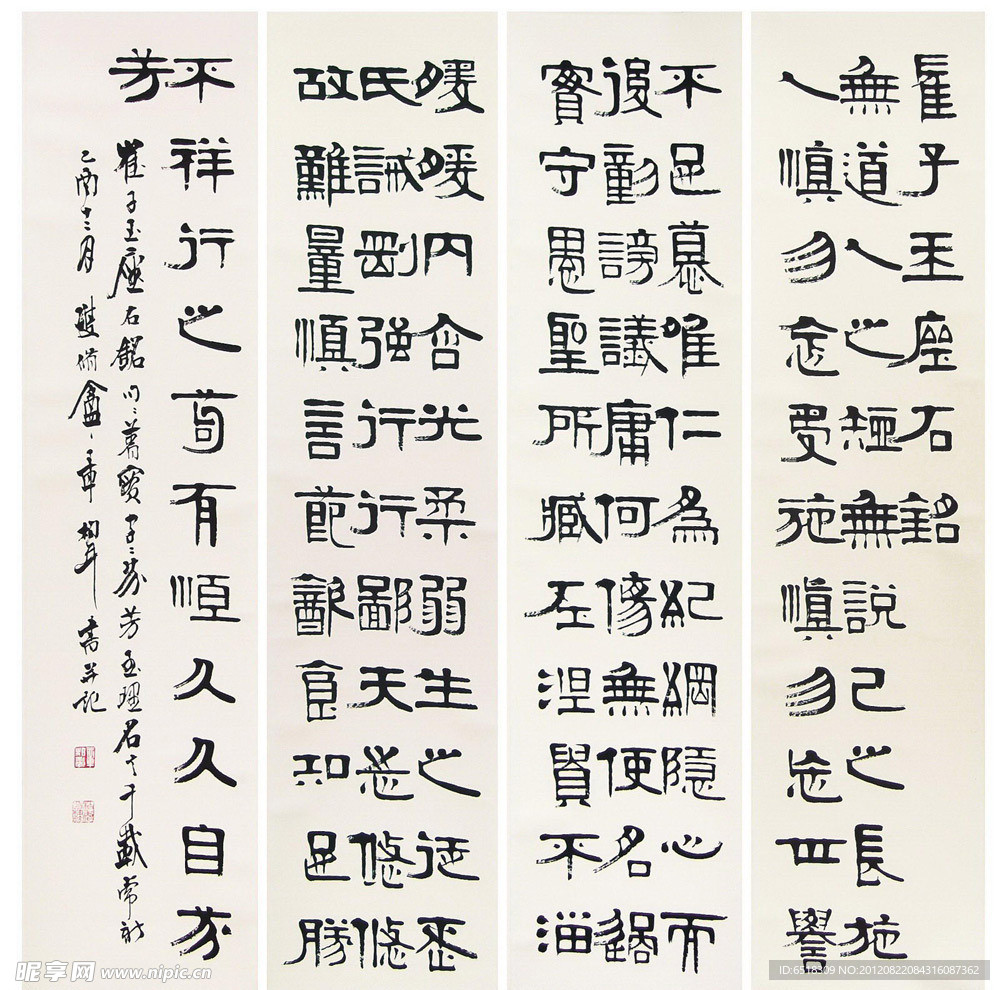 崔子玉座右銘
無道人之短無說己之長施
人慎勿念受施慎勿忘世譽
不足慕唯仁為紀綱隱心而
後動謗議庸何傷無使名過
實守愚聖所臧在涅貴不淄
曖曖內含光柔弱生之徒老
氏誡剛強行行鄙夫志悠悠
故難量慎言節飲食知足勝
不祥行之苟有恆久久自芬
芳
崔子玉座右銘句句蓄寶字字芬芳至理名言千載常新
乙酉十二月 書并記
昵享网 www.nipic.cn
ID:6518309 NO:20120822084316087362